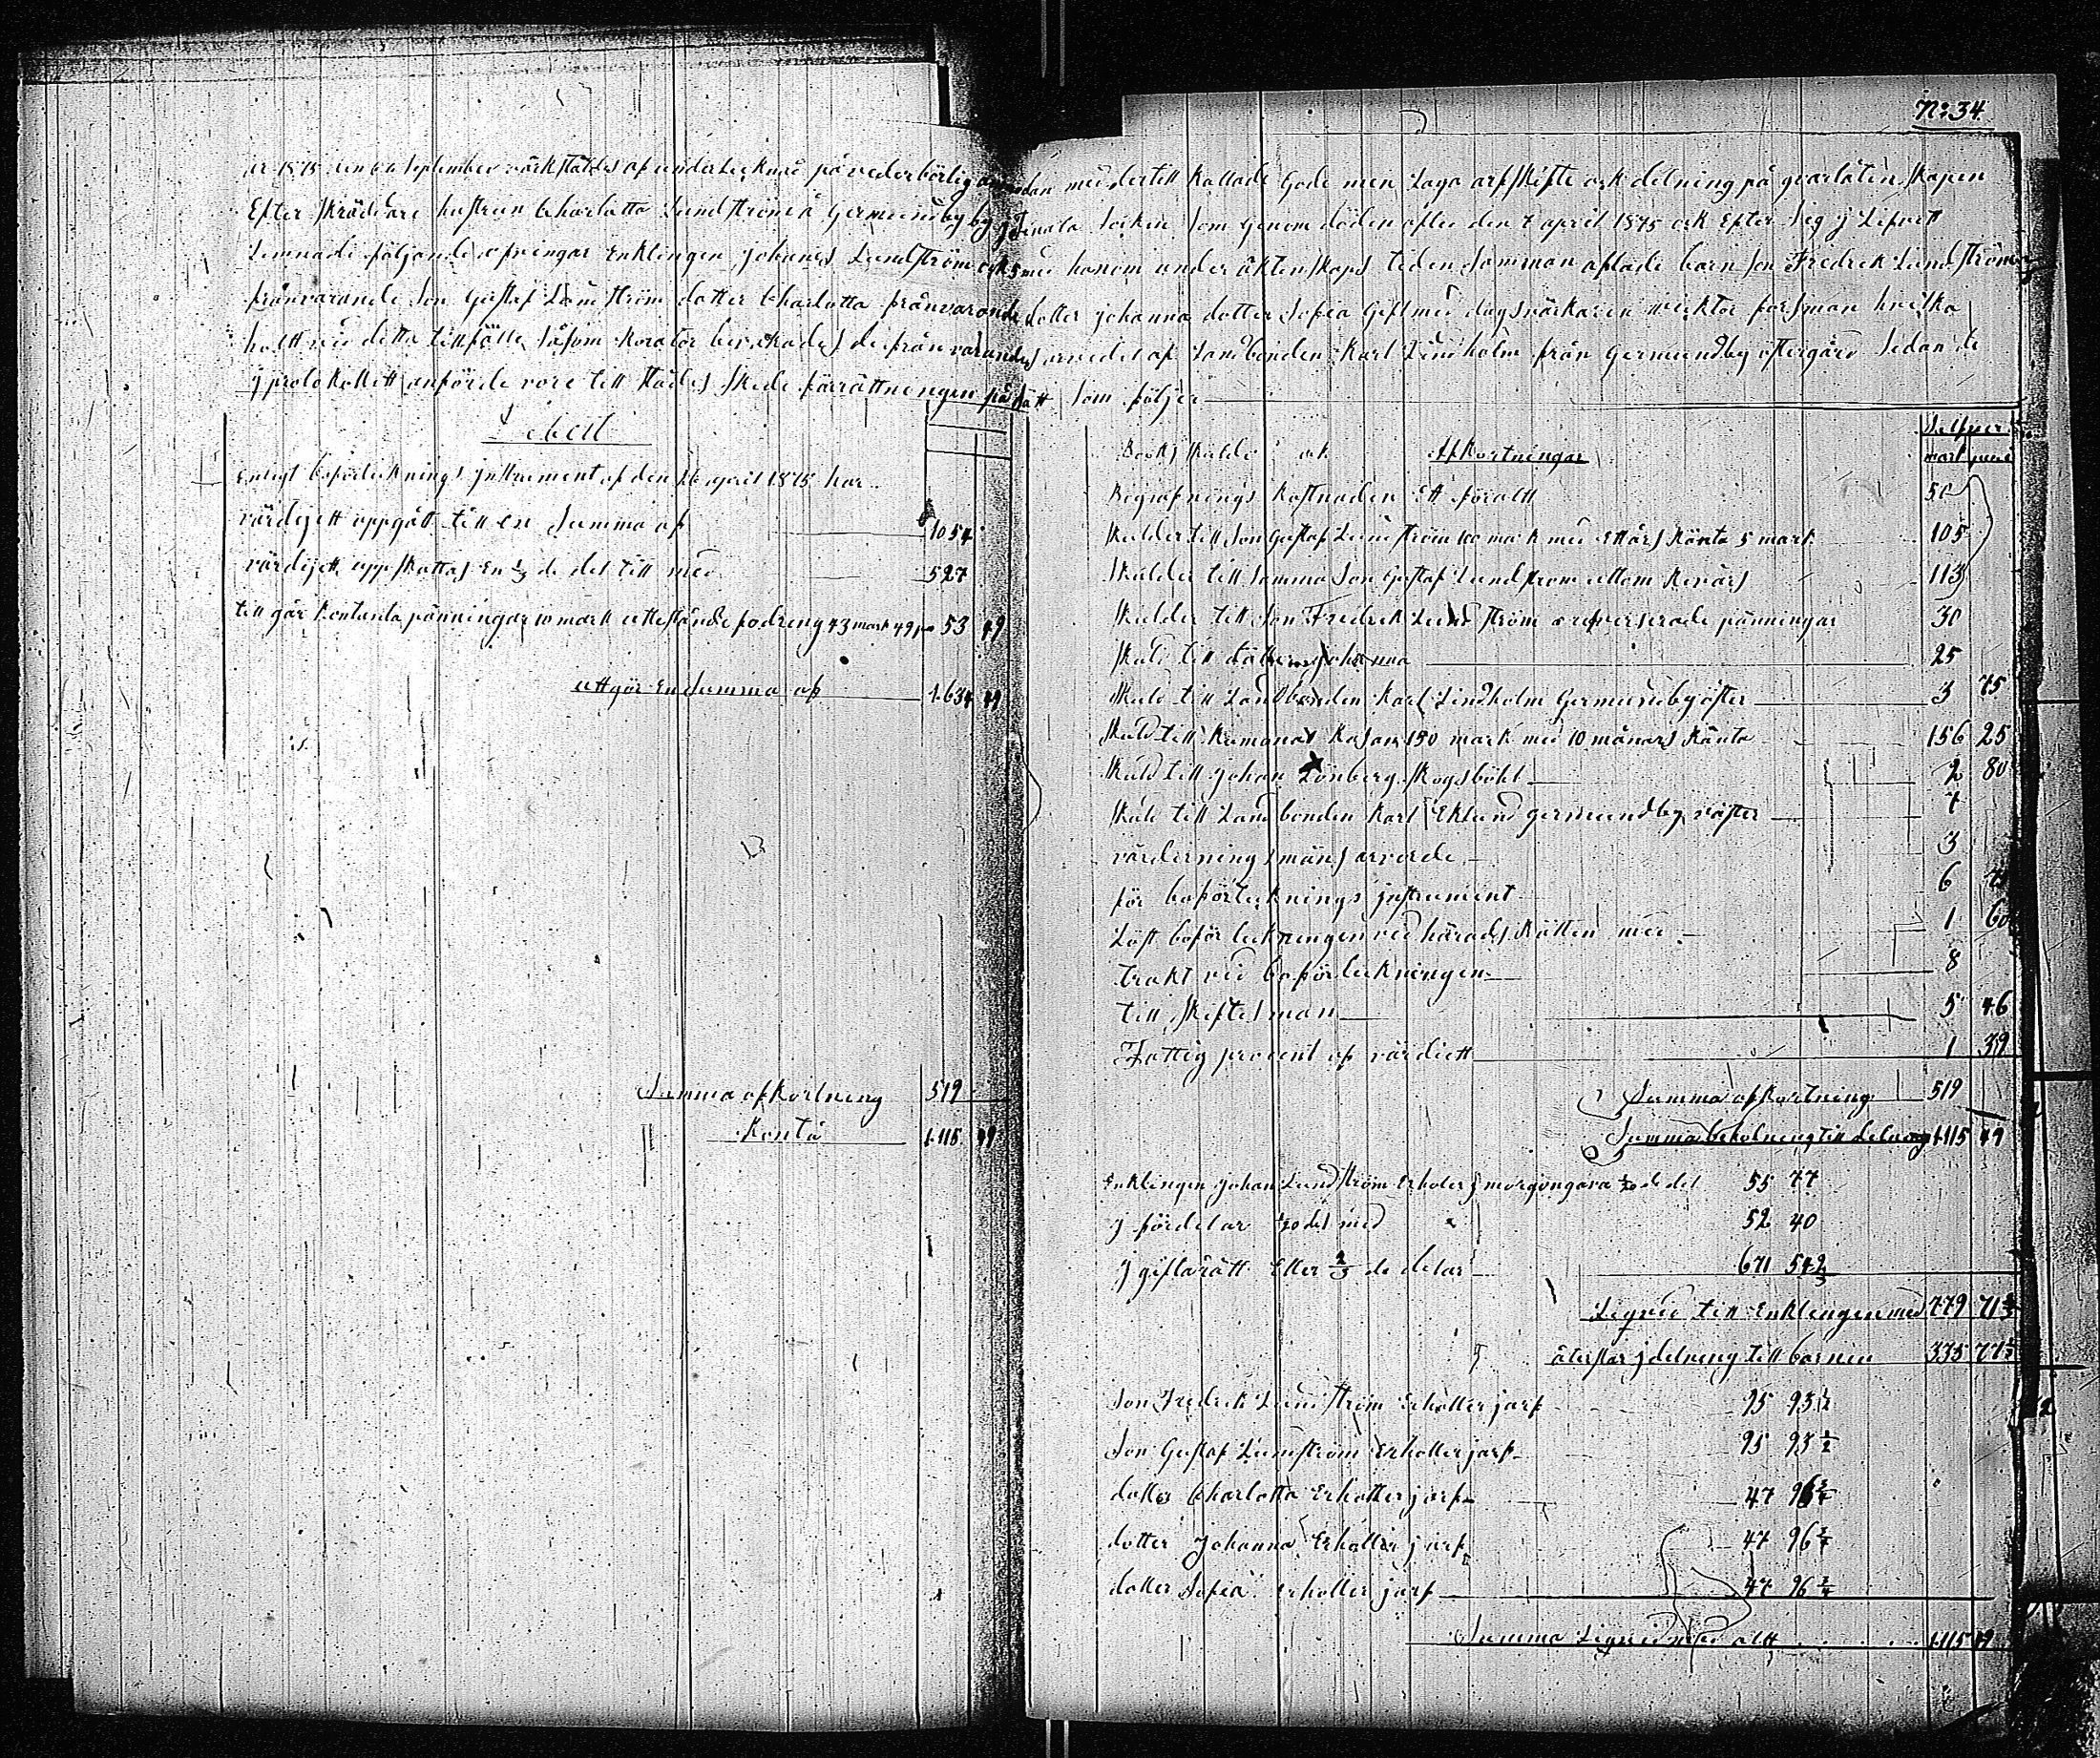 No 34
år 1875 den 6te September värkstältes af undertecknad på vederbörlig anmodan med dertill kallade Gode men Laga arfskifte ock delning på qvarlåtenskapen
Efter skräddare hustrun Charlotta Lundström å Germundby by j socken som Genom döden aflee den 7 april 1875 ock Efter sig j Lifvett
Lemnade följande arfvingar Enklingen johanes Lundström ock med honom under äktenskaps tiden samman aflade barn son Fredrek Lundström
frånvarande son Gustaf Lundström dotter Charlotta frånvarande dotter johanna dotter Sofia Gift med dagsvärkaren Vicktor forsman hvilka
vid detta tillfälle såsom Korator bevakades de frånvarandes af Landbonden Karl Lindholm från Germundby öftergård Sedan de
j protokollett anförde vore till städes skede förrättningen på sätt som följer
Debett
Enligt boförtecknings jnstrument af den 26 april 1875 har
värdejett uppgått till en Summa af 1054
värdejett uppskattas En ½ de del till med 527
till går kontanta pänningar 10 mark uttestånde fodring 43 mark 49 pn 53 49
uttgör En Summa af 1.634 49
Summa afkortning 519
Kontå 1.115 49
Silfver
Books skuld ock Afkortningar mark pene
Begrafnings kostnaden Ett föratt 50
Skulder till son Gustaf Lundström 100 mark med Ettårs Ränta 5 mark 105
Skulder till samma son Gustaf Lundström uttom Revärs 113
Skulder till son Fredrek Lundström oreverserade pänningar 30
Skuld till dottern johanna 25
Skuld till Landbonden Karl Lindholm Germundby öfter 3 75
Skuld till Kumonal Kasan 150 mark med 10 månars Ränta 156 25
Skuld till johan Lönberg Skogsböhl 2 80
Skuld till Landbonden Karl Eklund germundby väster 7
värderningsmäns arvorde 3
för boförtecknings jnstrument 6
Löst boförteckningen ved härads Rätten med 1 60
trakt ved boförteckningen 8
till skiftesman 5 46
Fattig procent af värdiett 1 39
Summa afkortning 519
Summa behålning till delning 1.115 49
Enklingen johan Lundström Erholer j morgongåva 1/20 de del 55 77
j fördelar 1/20 del med 52 40
j giftorätt Etter 2/3 de delar 671 54 2/3
Liqvid till Enklingen med 779 71 2/3
återstar j delning till barnen 335 77 1/3
Son Fredrek Lundström Erhåller j arf 95 93 ½
Son Gustaf Lundström Erhåller j arf 95 93 ½
dotter Charlotta Erhåller j arf 47 96 ¾
dotter Johanna Erhåller j arf 47 96 ¾
dotter Sofia Erhåller j arf 47 96 ¾
Summa Liqvid med alt 1.115 49